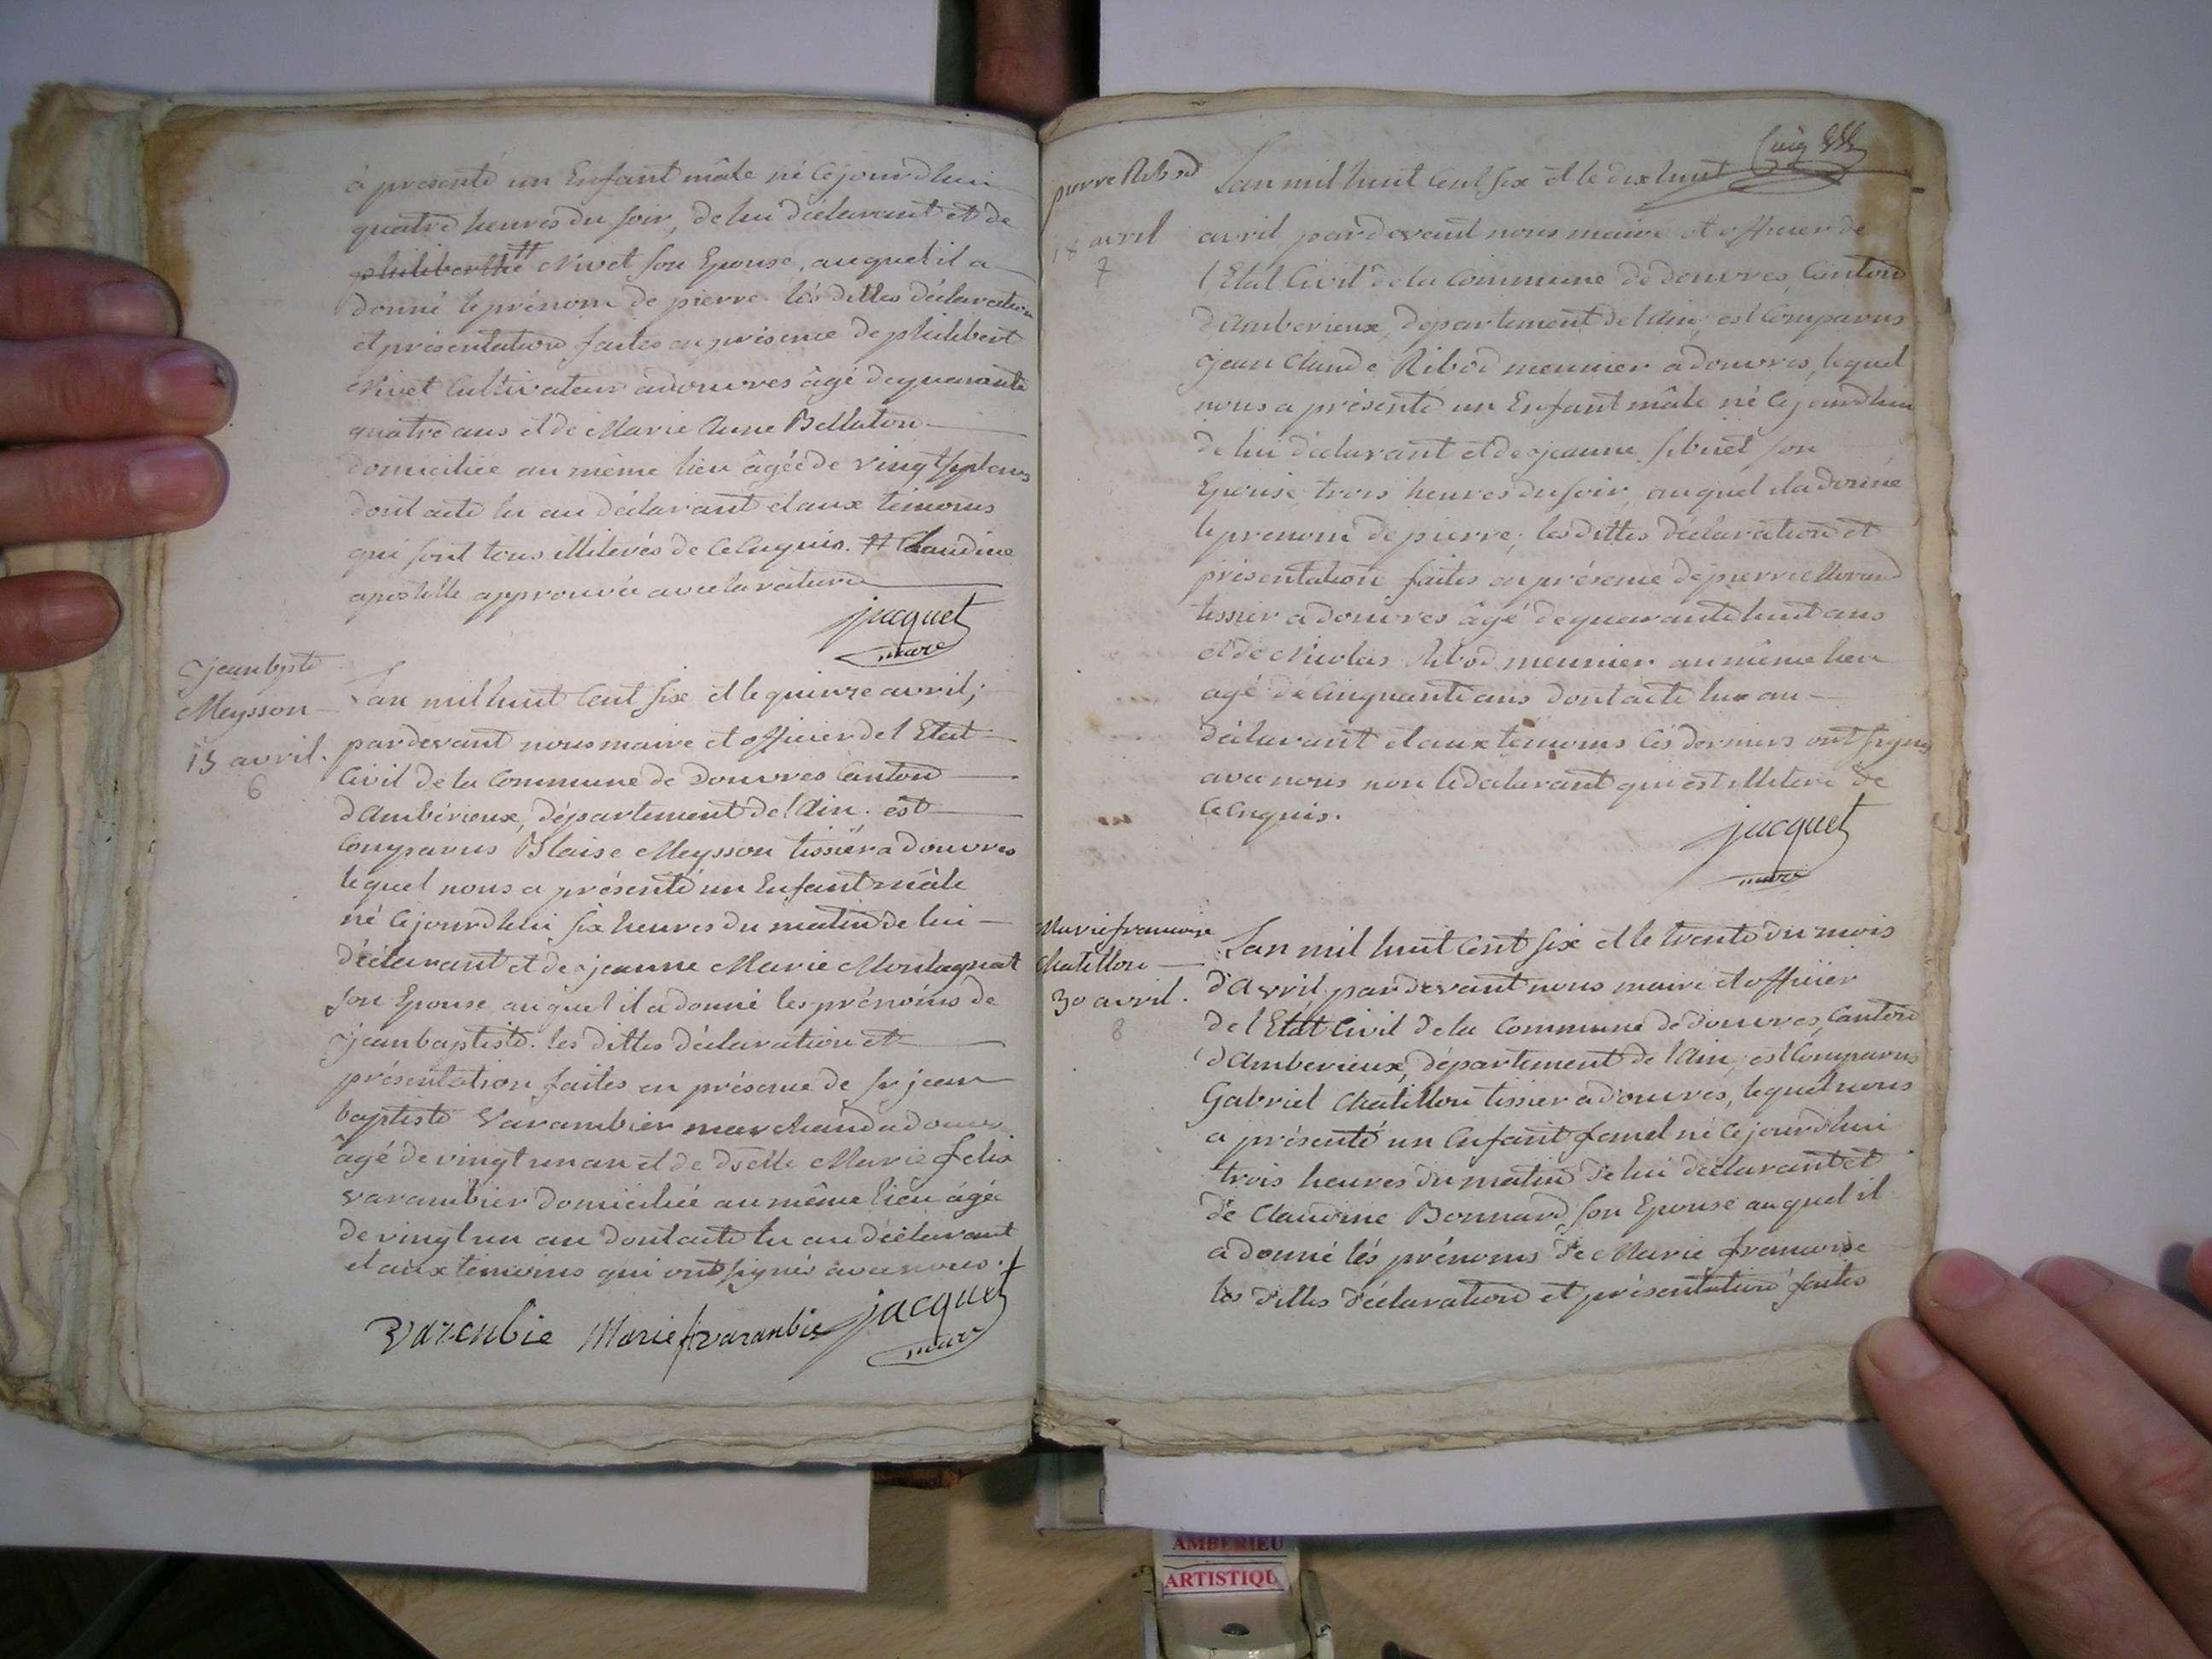 à presenté un Enfant mâle né Cejourdhui
quatre heures du soir, de lui déclarant et de
philiberthe # Nivet son Epouse, auquel il a
donné le prénom de pierre. les dittes déclaration
et présentation faites en présence de philibert
Nivet Cultivateur a douvres âgé de quarante
quatre ans et de Marie Anne Bellaton
domiciliée au même lieu âgée de vingt sept ans
dont acte lu au déclarant et aux témoins
qui sont tous illiterés de Ce Enquis. # Claudine
apostille approuvée avec la rature
jacquet
maire
jean bpste
Meysson
15 avril.
6
Lan mil huit Cent six et le quinze avril;
pardevant nous maire et officier de l'Etat
Civil de la Commune de Douvres Canton
d'Ambérieux, département de l'Ain. est
Comparus Blaise Meysson tissier a douvres
lequel nous a présenté un Enfant mâle
né Cejourdhui six heures du matin de lui
déclarant et de jeanne Marie Montagnat
son Epouse auquel il a donné les prénoms de
jean baptiste. les dittes déclaration et
présentation faites en présence de sr jean
baptiste Varambier marchand a douvres
âgé de vingt un an et de dselle Marie felix
varambier domiciliée au même lieu âgée
de vingt un an dont acte lu au déclarant
et aux témoins qui ont signés avec nous.
Varenbie Marie f varanbie jacquet
maire
pierre Ribod
18 avril
7
Lan mil huit Cent six et le dix huit
avril pardevant nous maire et officier de
l'Etat Civil de la Commune de douvres, Canton
d'Amberieux, département de l'Ain, est Comparus
jean Claude Ribod meunier a douvres, lequel
nous a présenté un Enfant mâle né Cejourdhui
de lui déclarant et de jeanne Sibuet son
Epouse trois heures du soir, auquel il a donné
le prenom de pierre; les dittes déclaration et
présentation faites en présence de pierre Morand
tissier a douvres âgé de quarante huit ans
et de Nicolas Ribod meunier au même lieu
agé de Cinquante ans dont acte lu au
déclarant et aux témoins Ces derniers ont signés
avec nous non le déclarant qui est illiteré de
Ce Enquis.
jacquet
maire
Marie francoise
Chatillon
30 avril.
8
Lan mil huit Cent six et le trente du mois
d'avril pardevant nous maire et officier
de l'Etat Civil de la Commune de Douvres, Canton
d'Amberieux, département de l'Ain, est Comparus
Gabriel Chatillon tissier a douvres, lequel nous
a présenté un Enfant femel né Cejourdhui
trois heures du matin de lui déclarant et
de Claudine Bonnard son Epouse auquel il
a donné les prénoms de Marie francoise
les dittes déclaration et présentation faites
AMBERIEU
ARTISTIQU